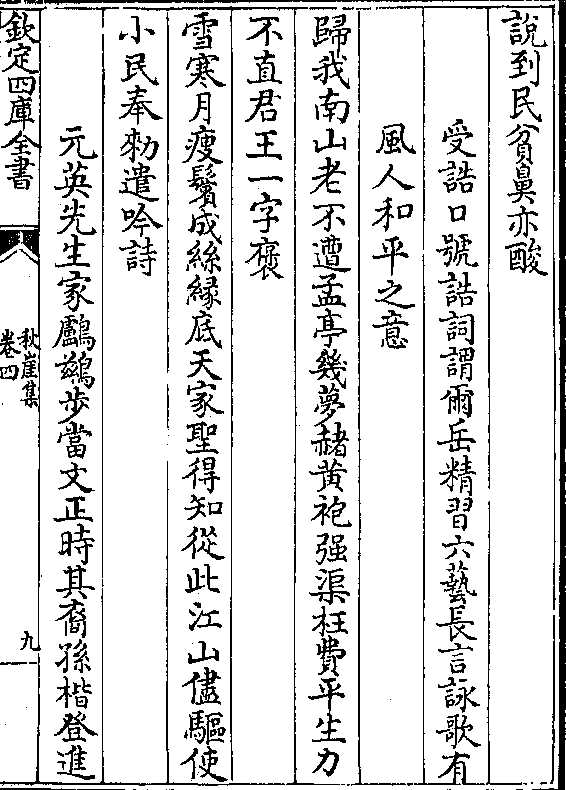 說到民貧鼻亦酸
受誥口號誥詞謂爾岳精習六藝長言詠歌有
風人和平之意
歸我南山老不遭孟亭幾夢赭黄袍强渠枉費平生力
不直君王一字褒
雪寒月瘦鬢成絲縁底天家聖得知從此江山儘驅使
小民奉勑遣吟詩
元英先生家鸕鷀步當文正時其裔孫楷登進
欽定四庫全書
秋崖集
卷四
九